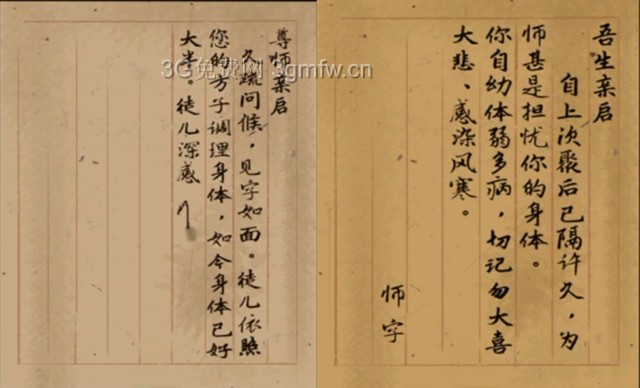 尊师亲启
久疏问候，见字如面。徒儿依照
您的方子调理身体，如今身体已好
大半。徒儿深感
吾生亲启
自上次聚后已隔许久，为
师甚是担忧你的身体。
你自幼体弱多病，切记勿大喜
大悲、感染风寒。
师字
3G免费网 3gmfw.cn